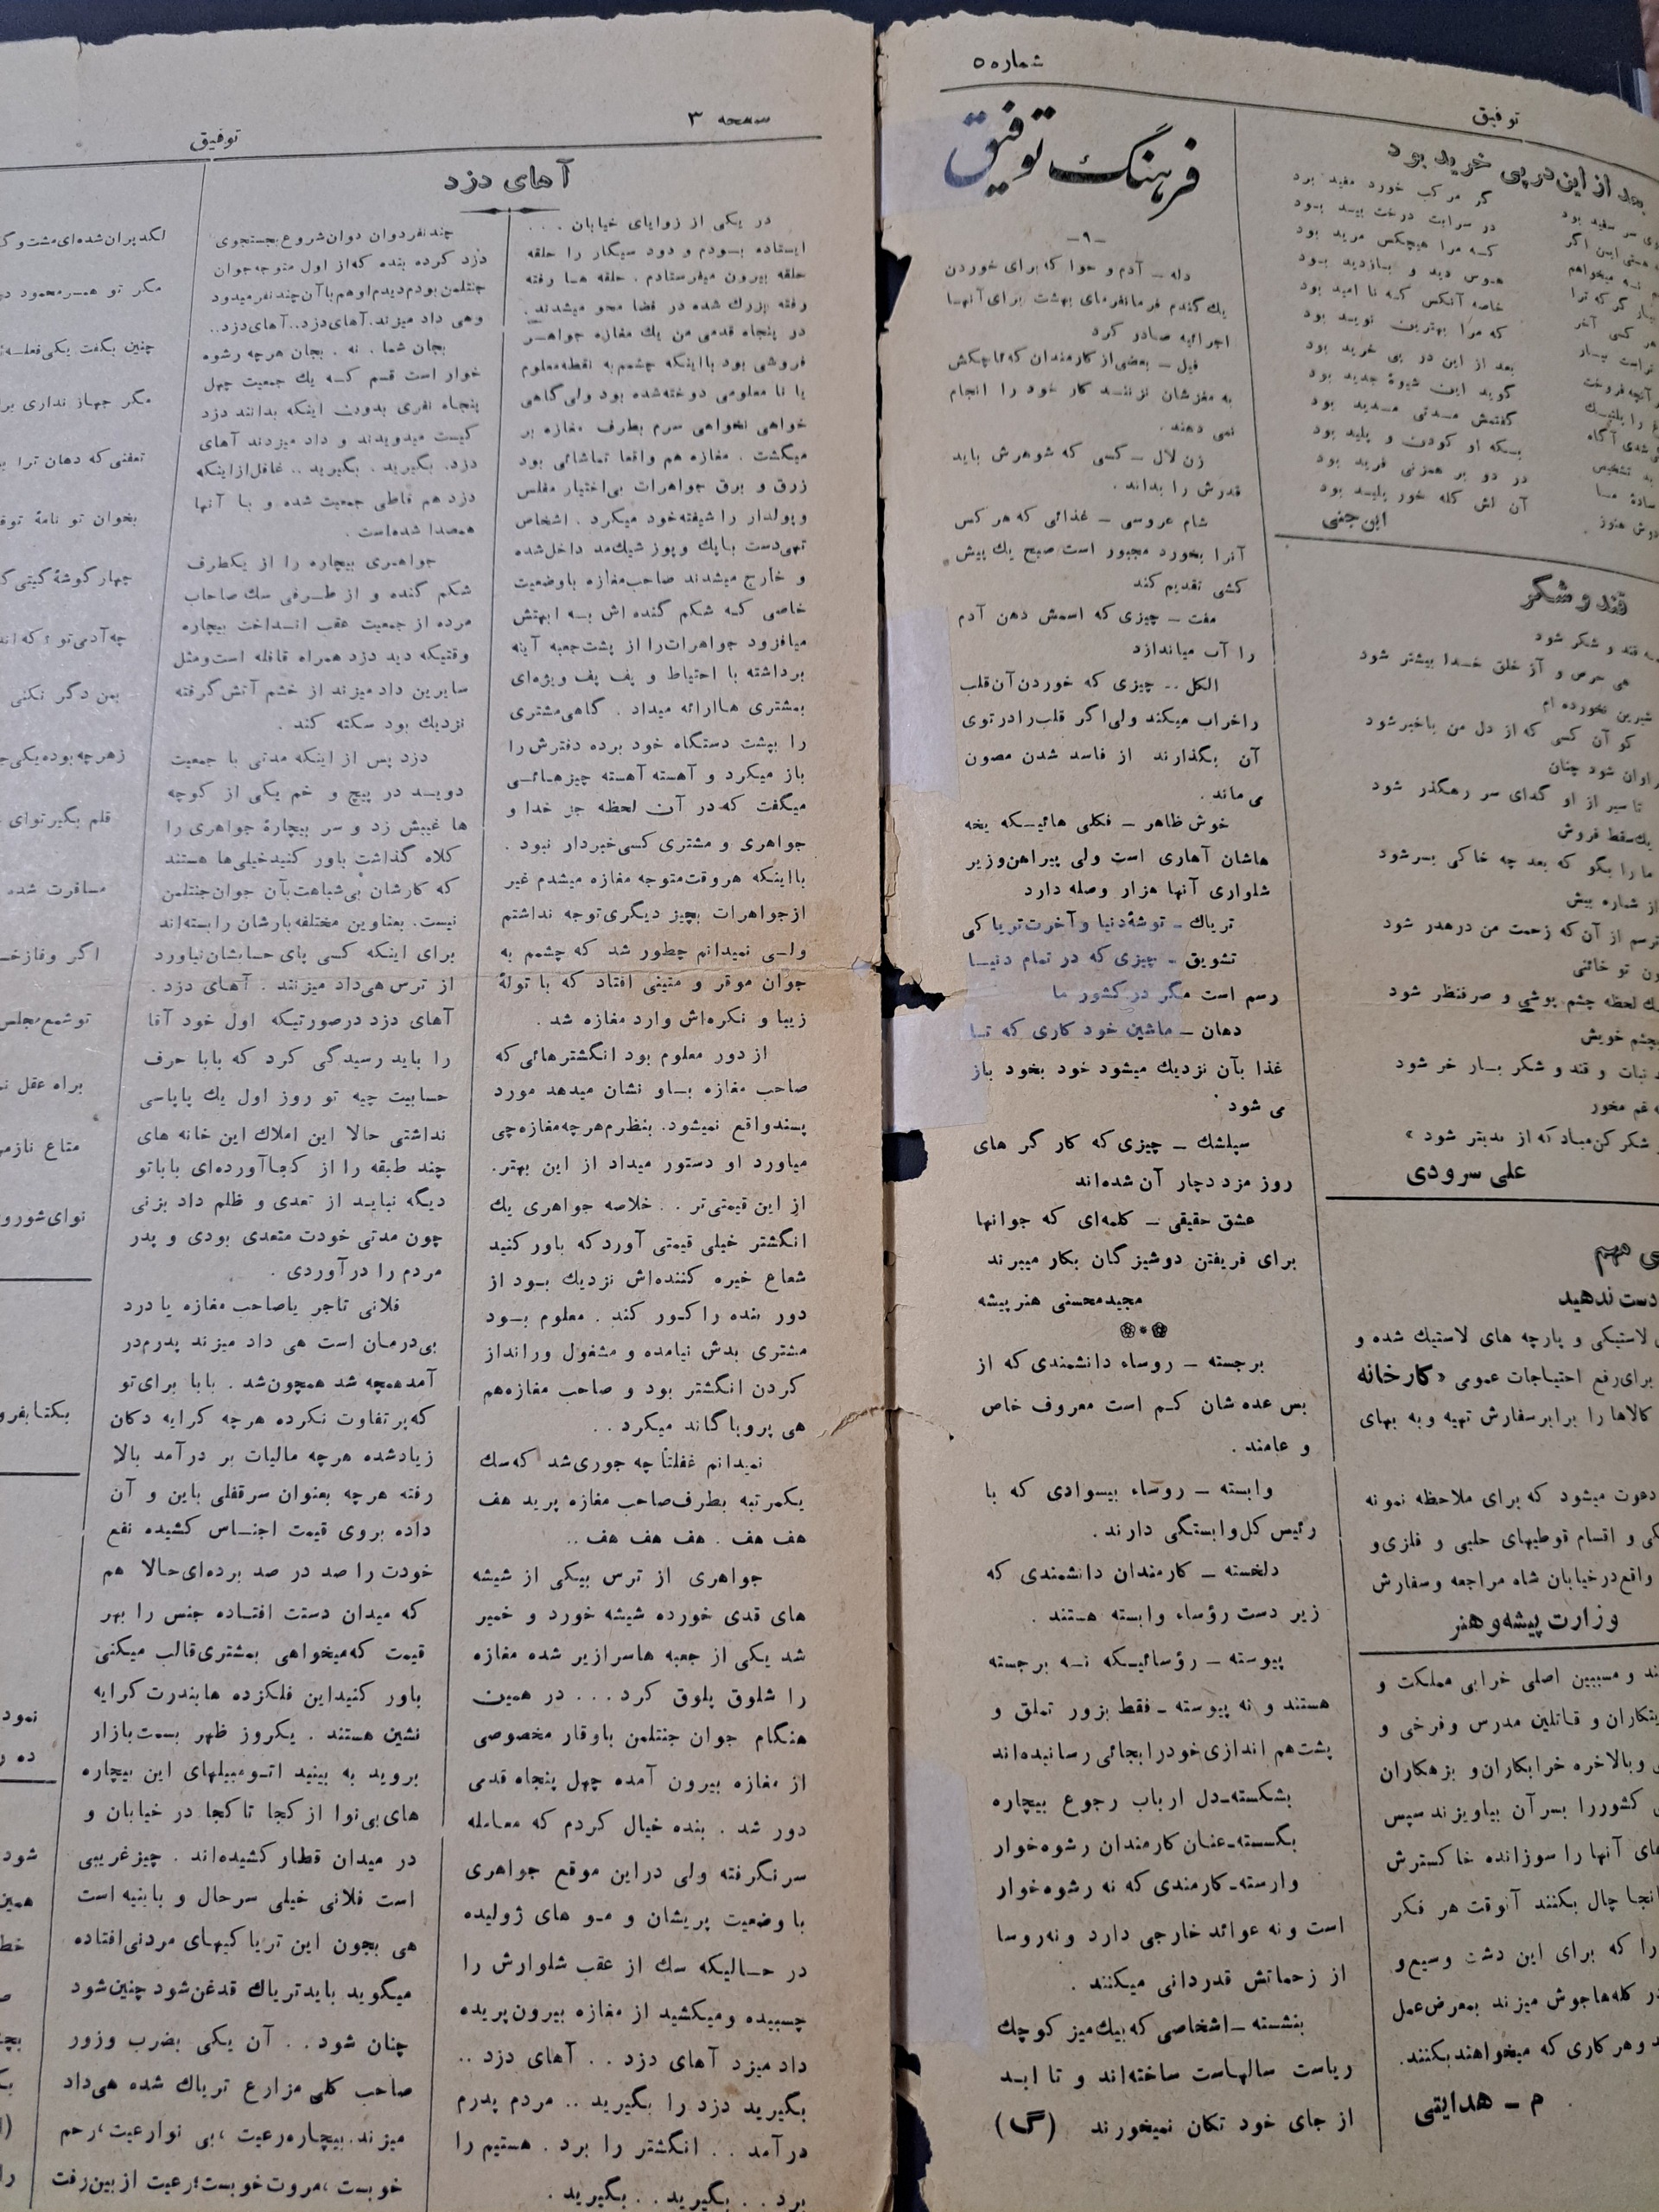 شماره ۵
توفیق
بعد از این در پی خرید بود
گر مرکب خورد مفید بود
در سرابت درخت بید بود
که مرا هیچکس مرید بود
هوس دید و بازدید بود
خاصه آنکس که نا امید بود
که مرا بهترین نوید بود
بعد از این در پی خرید بود
گوید این شیوهٔ جدید بود
گفتمش مدتی مدید بود
بسکه او کودن و پلید بود
در دو بر همزنی فرید بود
آن اش کله خور پلید بود
ابن جنی
قند و شکر
قند و شکر شود
هی حرص و آز خلق خدا بیشتر شود
شیرین نخورده ام
کو آن کسی که از دل من باخبر شود
شود چنان
تا سیر از او گدای سر رهگذر شود
یک سقط فروش
ما را بگو که بعد چه خاکی بسر شود
از شماره بیش
ترسم از آن که زحمت من در هدر شود
تو خائنی
لحظه چشم پوشی و صرفنظر شود
بچشم خویش
نبات و قند و شکر بار خر شود
غم مخور
شکر کن مباد که از بد بتر شود »
علی سرودی
مهم
دست ندهید
لاستیکی و پارچه های لاستیک شده و
برای رفع احتیاجات عمومی «کارخانه
کالاها را برابر سفارش تهیه و به بهای
دعوت میشود که برای ملاحظه نمونه
و اقسام قوطیهای حلبی و فلزی و
واقع در خیابان شاه مراجعه و سفارش
وزارت پیشه و هنر
و مسببین اصلی خرابی مملکت و
و قاتلین مدرس و فرخی و
وبالاخره خرابکاران و بزهکاران
کشور را بسر آن بیاویزند سپس
های آنها را سوزانده خاکسترش
چال بکنند آنوقت هر فکر
را که برای این دشت وسیع و
در کله ها جوش میزند بمعرض عمل
و هر کاری که میخواهند بکنند.
م ـ هدایتی
فرهنگ توفیق
ـ۹ـ
دله ـ آدم و حوا که برای خوردن
یك گندم فرمانفرمای بهشت برای آنها
اجرائیه صادر کرد
فیل ـ بعضی از کارمندان که تا چکش
به مغزشان نزنند کار خود را انجام
نمی دهند .
زن لال ـ کسی که شوهرش باید
قدرش را بداند .
شام عروسی ـ غذائی که هر کس
آنرا بخورد مجبور است صبح یك پیش
کشی تقدیم کند
مفت ـ چیزی که اسمش دهن آدم
را آب میاندازد
الکل .. چیزی که خوردن آن قلب
را خراب میکند ولی اگر قلب را در توی
آن بگذارند از فاسد شدن مصون
می ماند .
خوش ظاهر ـ فکلی هائیکه یخه
هاشان آهاری است ولی پیراهن و زیر
شلواری آنها هزار وصله دارد
تریاك ـ توشهٔ دنیا و آخرت تریاکی
تشویق ـ چیزی که در تمام دنیا
رسم است مگر در کشور ما
دهان ـ ماشین خود کاری که تا
غذا بآن نزدیك میشود خود بخود باز
می شود .
سپلشك ـ چیزی که کار گر های
روز مزد دچار آن شده‌اند
عشق حقیقی ـ کلمه‌ای که جوانها
برای فریفتن دوشیزگان بکار میبرند
مجید محسنی هنر پیشه
برجسته ـ روساء دانشمندی که از
بس عده شان کم است معروف خاص
و عامند .
وابسته ـ روساء بیسوادی که با
رئیس کل وابستگی دارند .
دلخسته ـ کارمندان دانشمندی که
زیر دست رؤساء وابسته هستند .
پیوسته ـ رؤسائیکه نه برجسته
هستند و نه پیوسته ـ فقط بزور تملق و
پشت هم اندازی خود را بجائی رسانیده‌اند
بشکسته‌ـدل ارباب رجوع بیچاره
بگسسته‌ـعنان کارمندان رشوه خوار
وارسته‌ـکارمندی که نه رشوه خوار
است و نه عوائد خارجی دارد و نه روسا
از زحماتش قدردانی میکنند .
بنشسته ـاشخاصی که بیك میز کوچك
ریاست سالهاست ساخته‌اند و تا ابد
از جای خود تکان نمیخورند (گ)
صفحه ۳
توفیق
آهای دزد
در یکی از زوایای خیابان . . .
ایستاده بودم و دود سیگار را حلقه
حلقه بیرون میفرستادم . حلقه ها رفته
رفته بزرك شده در فضا محو میشدند .
در پنجاه قدمی من یك مغازه جواهر
فروشی بود بااینکه چشمم به نقطه معلوم
یا نا معلومی دوخته شده بود ولی گاهی
خواهی نخواهی سرم بطرف مغازه بر
میگشت . مغازه هم واقعا تماشائی بود
زرق و برق جواهرات بی اختیار مفلس
و پولدار را شیفته خود میکرد . اشخاص
تهی دست با پك و پوز شیك مد داخل شده
و خارج میشدند صاحب مغازه با وضعیت
خاصی که شکم گنده اش به ابهتش
میافزود جواهرات را از پشت جعبه آینه
برداشته با احتیاط و پف پف ویژه‌ای
بمشتری ها ارائه میداد . گاهی مشتری
را بپشت دستگاه خود برده دفترش را
باز میکرد و آهسته آهسته چیزهائی
میگفت که در آن لحظه جز خدا و
جواهری و مشتری کسی خبردار نبود .
بااینکه هر وقت متوجه مغازه میشدم غیر
از جواهرات بچیز دیگری توجه نداشتم
ولی نمیدانم چطور شد که چشمم به
جوان موقر و متینی افتاد که با تولهٔ
زیبا و نکره‌اش وارد مغازه شد .
از دور معلوم بود انگشترهائی که
صاحب مغازه باو نشان میدهد مورد
پسند واقع نمیشود. بنظرم هر چه مغازه چی
میاورد او دستور میداد از این بهتر .
از این قیمتی تر . . خلاصه جواهری یك
انگشتر خیلی قیمتی آورد که باور کنید
شعاع خیره کننده‌اش نزدیك بود از
دور بنده را کور کند . معلوم بود
مشتری بدش نیامده و مشغول ورانداز
کردن انگشتر بود و صاحب مغازه هم
هی پروپاگاند میکرد . .
نمیدانم غفلتاً چه جوری شد که سك
یکمرتبه بطرف صاحب مغازه پرید هف
هف هف . هف هف هف ..
جواهری از ترس بیکی از شیشه
های قدی خورده شیشه خورد و خمیر
شد یکی از جعبه ها سرازیر شده مغازه
را شلوق پلوق کرد . . . در همین
هنگام جوان جنتلمن باوقار مخصوصی
از مغازه بیرون آمده چهل پنجاه قدمی
دور شد . بنده خیال کردم که معامله
سر نگرفته ولی در این موقع جواهری
با وضعیت پریشان و مو های ژولیده
در حالیکه سك از عقب شلوارش را
چسبیده و میکشید از مغازه بیرون پریده
داد میزد آهای دزد . . آهای دزد ..
بگیرید دزد را بگیرید .. مردم پدرم
درآمد . . انگشتر را برد . هستیم را
برد . . بگیرید . . بگیرید .
چند نفر دوان دوان شروع بجستجوی
دزد کرده بنده که از اول متوجه جوان
جنتلمن بودم دیدم او هم با آن چند نفر میدود
وهی داد میزند. آهای دزد.. آهای دزد..
بجان شما . نه . بجان هرچه رشوه
خوار است قسم که یك جمعیت چهل
پنجاه نفری بدون اینکه بدانند دزد
کیست میدویدند و داد میزدند آهای
دزد. بگیرید . بگیرید .. غافل از اینکه
دزد هم قاطی جمعیت شده و با آنها
همصدا شده‌است .
جواهری بیچاره را از یکطرف
شکم گنده و از طرفی سك صاحاب
مرده از جمعیت عقب انداخت بیچاره
وقتیکه دید دزد همراه قافله است و مثل
سایرین داد میزند از خشم آتش گرفته
نزدیك بود سکته کند .
دزد پس از اینکه مدتی با جمعیت
دوید در پیچ و خم یکی از کوچه
ها غیبش زد و سر بیچارهٔ جواهری را
کلاه گذاشت باور کنید خیلی ها هستند
که کارشان بی شباهت بآن جوان جنتلمن
نیست. بعناوین مختلفه بارشان را بسته‌اند
برای اینکه کسی پای حسابشان نیاورد
از ترس هی داد میزنند . آهای دزد .
آهای دزد درصورتیکه اول خود آقا
را باید رسیدگی کرد که بابا حرف
حسابیت چیه تو روز اول یك پاپاسی
نداشتی حالا این املاك این خانه های
چند طبقه را از کجا آورده‌ای بابا تو
دیگه نباید از تعدی و ظلم داد بزنی
چون مدتی خودت متعدی بودی و پدر
مردم را در آوردی .
فلانی تاجر یا صاحب مغازه یا درد
بی درمان است هی داد میزند پدرم در
آمد همچه شد همچون شد . بابا برای تو
که بر تفاوت نکرده هرچه کرایه دکان
زیاد شده هرچه مالیات بر درآمد بالا
رفته هرچه بعنوان سرقفلی باین و آن
داده بروی قیمت اجناس کشیده نفع
خودت را صد در صد برده‌ای حالا هم
که میدان دستت افتاده جنس را بهر
قیمت که میخواهی بمشتری قالب میکنی
باور کنید این فلکزده ها بندرت کرایه
نشین هستند . یکروز ظهر بسمت بازار
بروید به بینید اتومبیلهای این بیچاره
های بی نوا از کجا تا کجا در خیابان و
در میدان قطار کشیده‌اند . چیز غریبی
است فلانی خیلی سرحال و بابنیه است
هی بجون این تریاکیهای مردنی افتاده
میگوید باید تریاك قدغن شود چنین شود
چنان شود . . آن یکی بضرب وزور
صاحب کلی مزارع تریاك شده هی داد
میزند. بیچاره رعیت ، بی نوا رعیت، رحم
خوبست ، مروت خوبست؛ رعیت از بین رفت
لگدپران شده‌ای مشت و
مگر تو همسر محمود
چنین بگفت یکی
مگر جهاز نداری
تعفنی که دهان ترا
بخوان تو نامهٔ
چهار گوشهٔ گیتی
چه آدمی تو ؟ که
بمن دگر نکنی
زهرچه بوده یکی
قلم بگیر توای
مسافرت شده
اگر وفا
تو شمع مجلس
براه عقل
متاع ناز
نوای شور و
نمود
شود